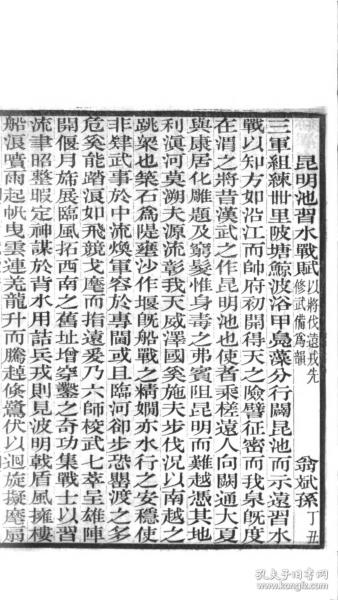 昆明池習水戰賦以將伐遠戎先修武備爲韻　翁斌孫丁丑
三軍組練卅里陂塘鯨波浴甲鳧藻分行闢昆池而示遠習水
戰以知方如沿江而帥府初開得天之險譬征密而我泉既度
在渭之將昔漢武之作昆明池也使者乘槎遠人向闕通大夏
與康居化雕題及窮髮惟身毒之弗賓阻昆明而難越憑其地
利滇河莫溯夫源流彰我天威澤國奚施夫步伐況以南越之
跳梁也築石為隄壅沙作堰既船戰之精嫻亦水行之安穩使
非肄武事於中流煥軍容於專閫或且臨河卻步恐罌渡之多
危奚能踏浪如飛競戈麾而指遠爰乃六師梭武七萃呈雄陣
開偃月旆展臨風拓西南之舊址增穿鑿之奇功集戰士以習
流聿昭整暇定神謀於背水用詰兵戎則見波明戟盾風擁樓
船浪噴雨起帆曳雲連羌龍升而騰趠倏鷺伏以迴旋擬麾扇
孔夫子旧书网